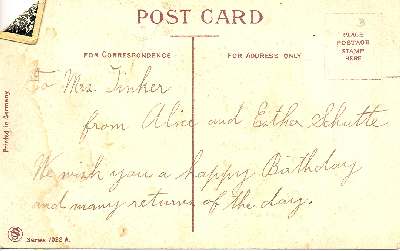 POST CARD
FOR CORRESPONDENCE
FOR ADDRESS ONLY
PLACE
POSTAGE
STAMP
HERE
To Mrs. Tinker
from Alice and Esther Schutte
We wish you a happy Birthday
and many returns of the day.
Printed in Germany
Series 1022 A.